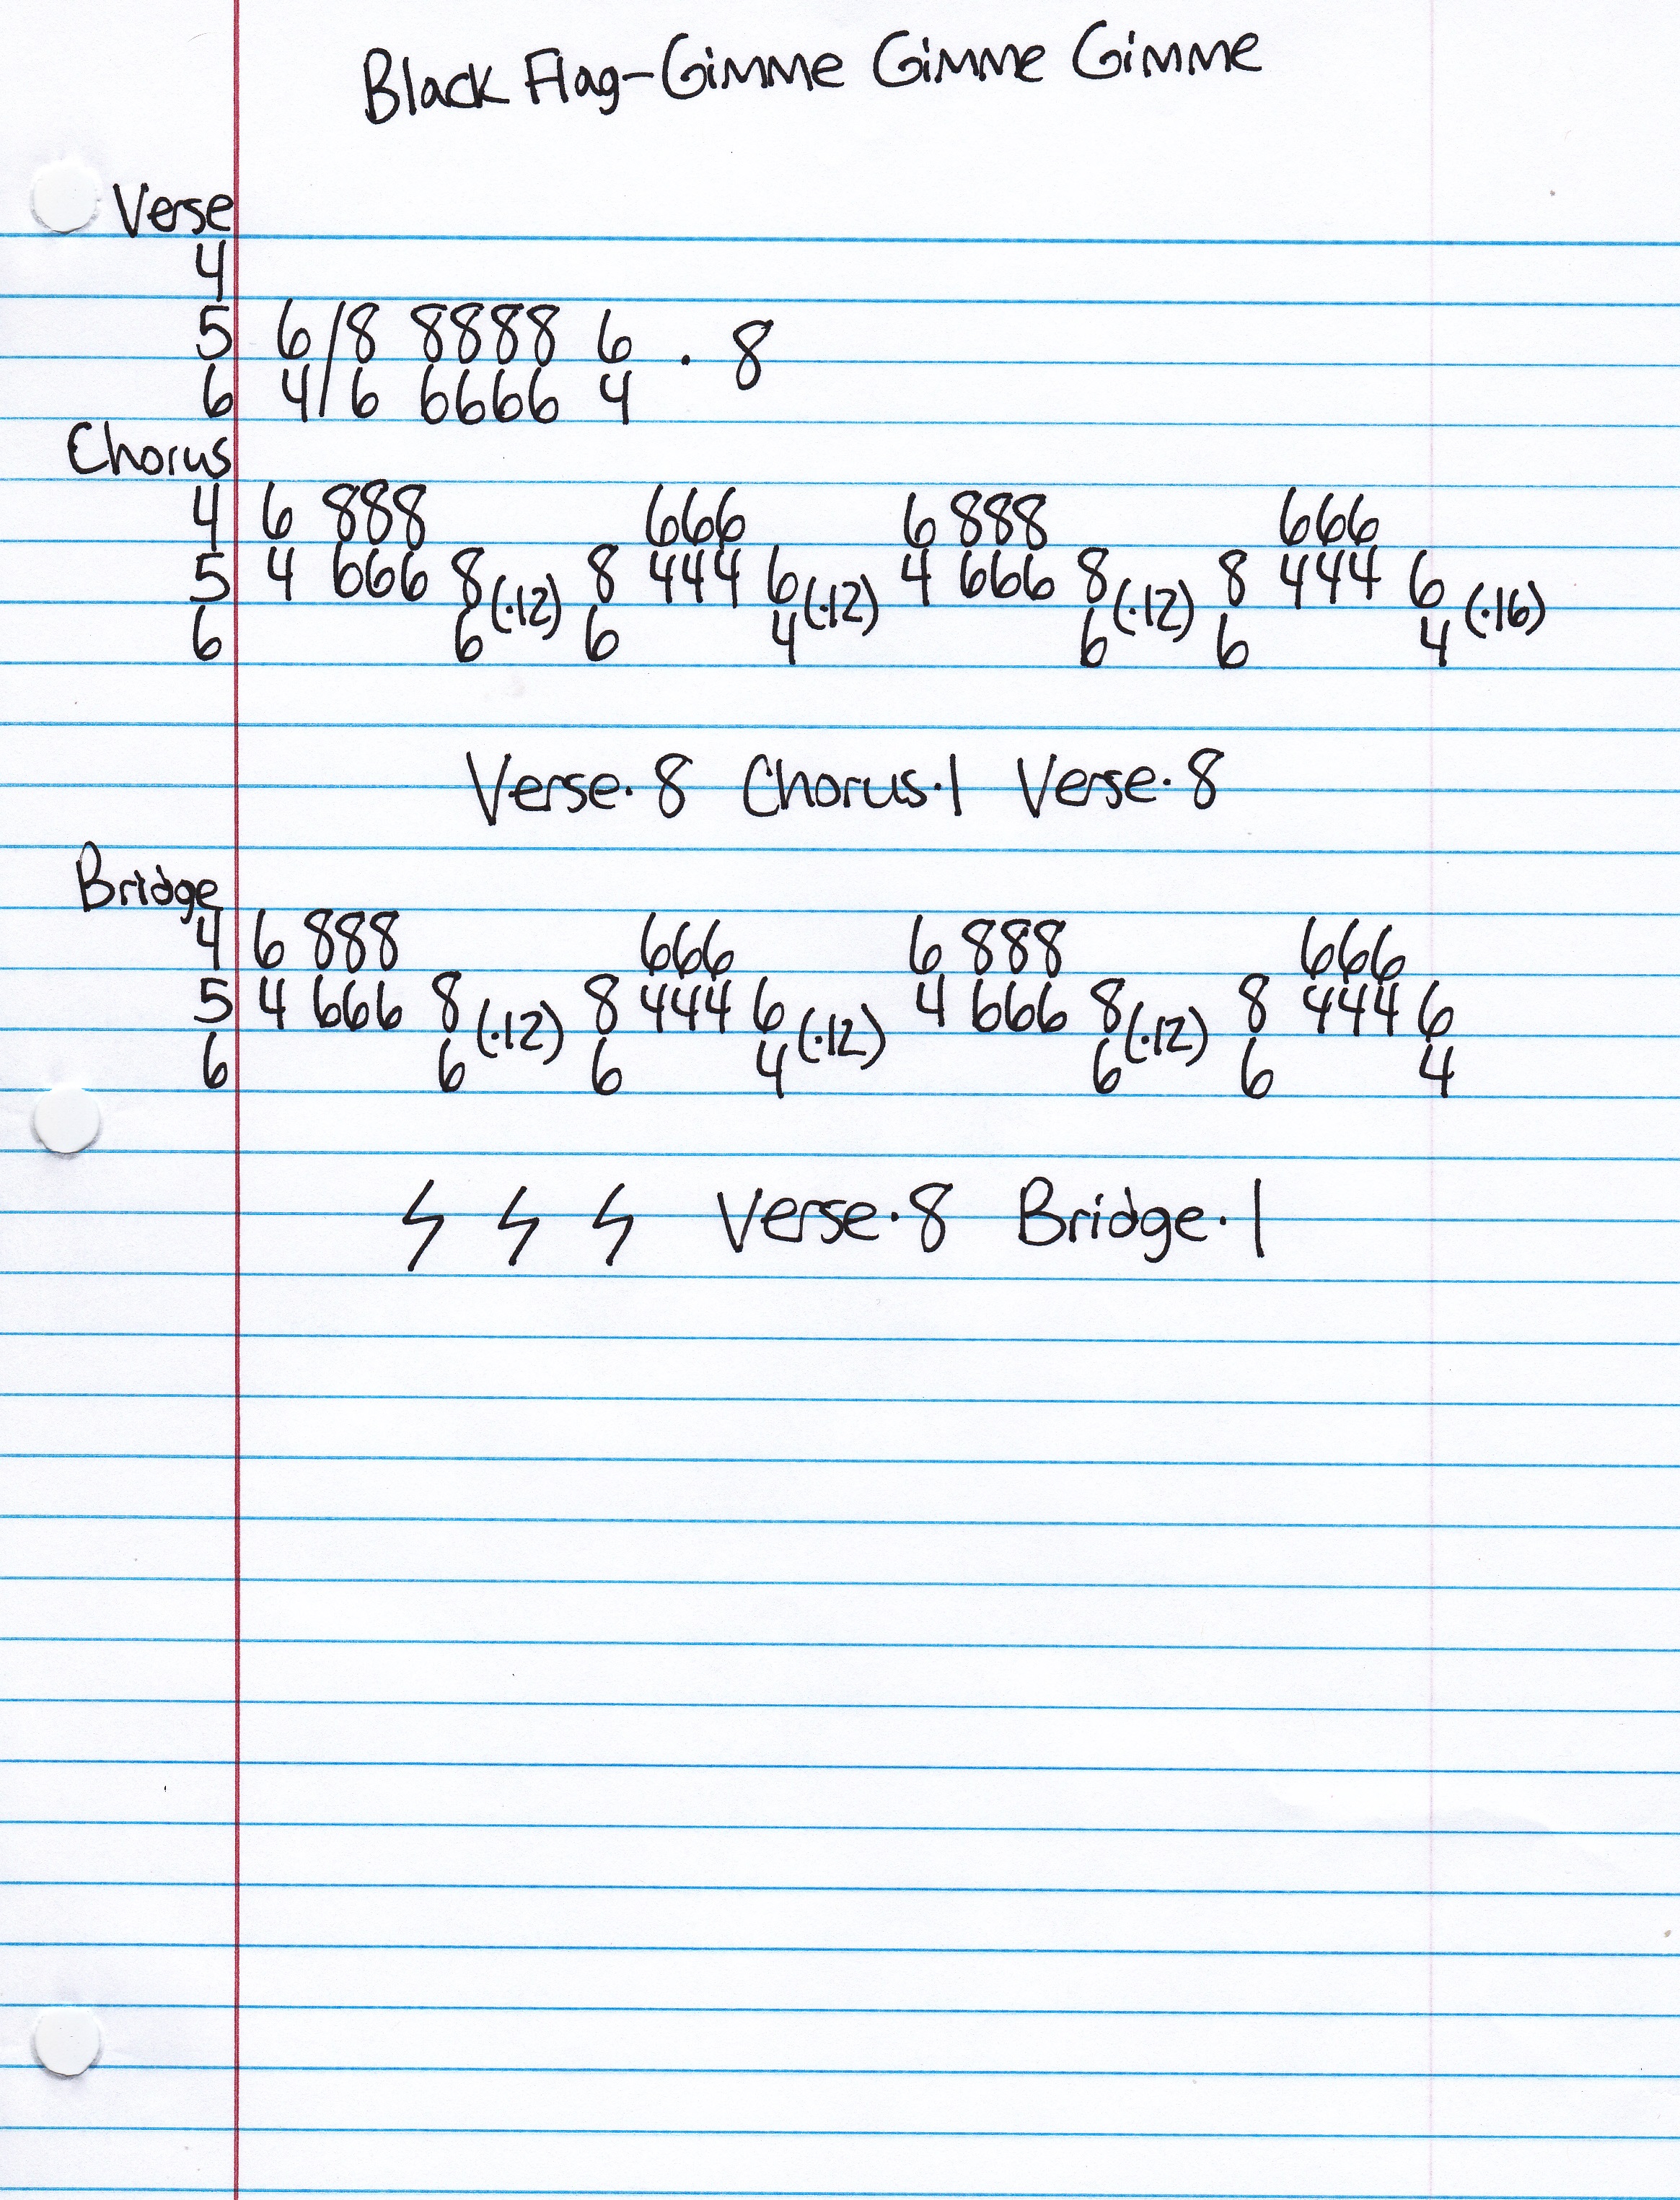 Black Flag-Gimme Gimme Gimme
Verse
4
5 6/8 8888 6 · 8
6 4/6 6666 4
Chorus
4 6 888 666 6 888 666
5 4 666 8 (·12) 8 444 6 (·12) 4 666 8 (·12) 8 444 6 (·16)
6 6 6 4 6 6 4
Verse·8 Chorus·1 Verse·8
Bridge
4 6 888 666 6 888 666
5 4 666 8 (·12) 8 444 6 (·12) 4 666 8 (·12) 8 444 6
6 6 6 4 6 6 4
Verse·8 Bridge·1